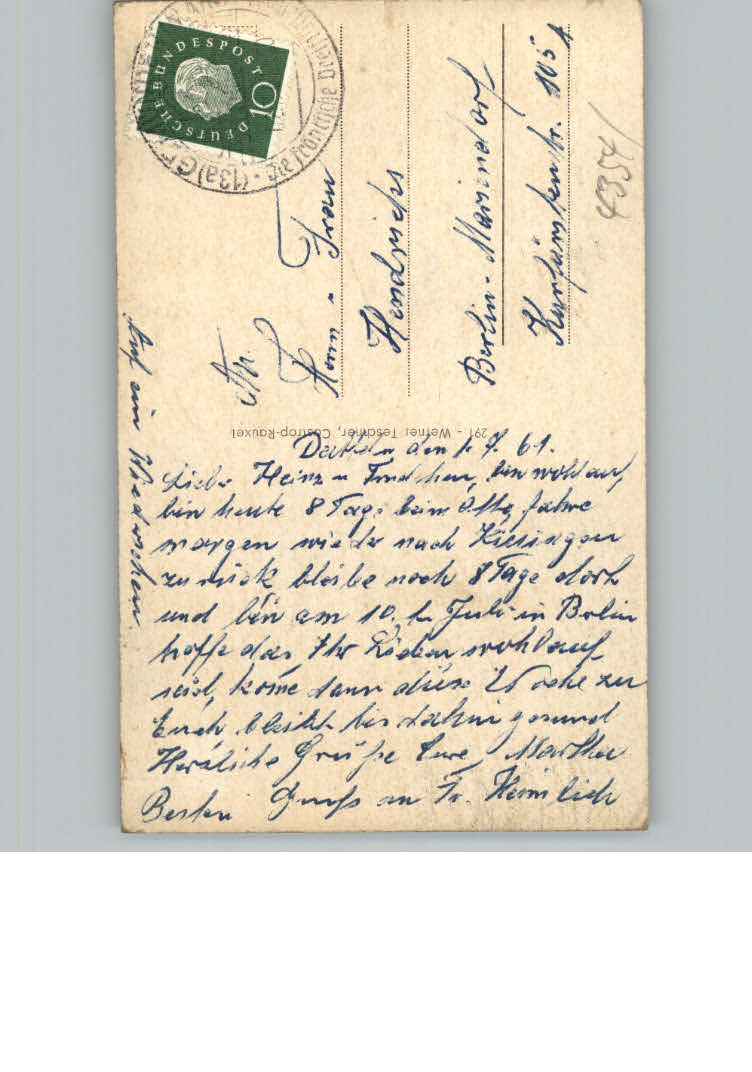 DEUTSCHE BUNDESPOST
10
(13a) GE
Die fränkische
An
Herrn u Frau
Hendrichs
Berlin-Mariendorf
Kurfürstenstr. 105 A
4354/
291 - Werner Teschner, Castrop-Rauxel
den 1. 7. 61.
Liebe Heinz u Trudchen, bin wohlauf,
bin heute 8 Tage beim Otto, fahre
morgen wieder nach Kissingen
zurück bleibe noch 8 Tage dort
und bin am 10. Juli in Berlin
hoffe das Ihr Lieben wohlauf
seid, kome dann diese Woche zu
Euch bleibt bis dahin gesund
Herzliche Grüße Eure Martha
Besten Gruß an Fr. Heimlich
Auf ein Wiedersehen.